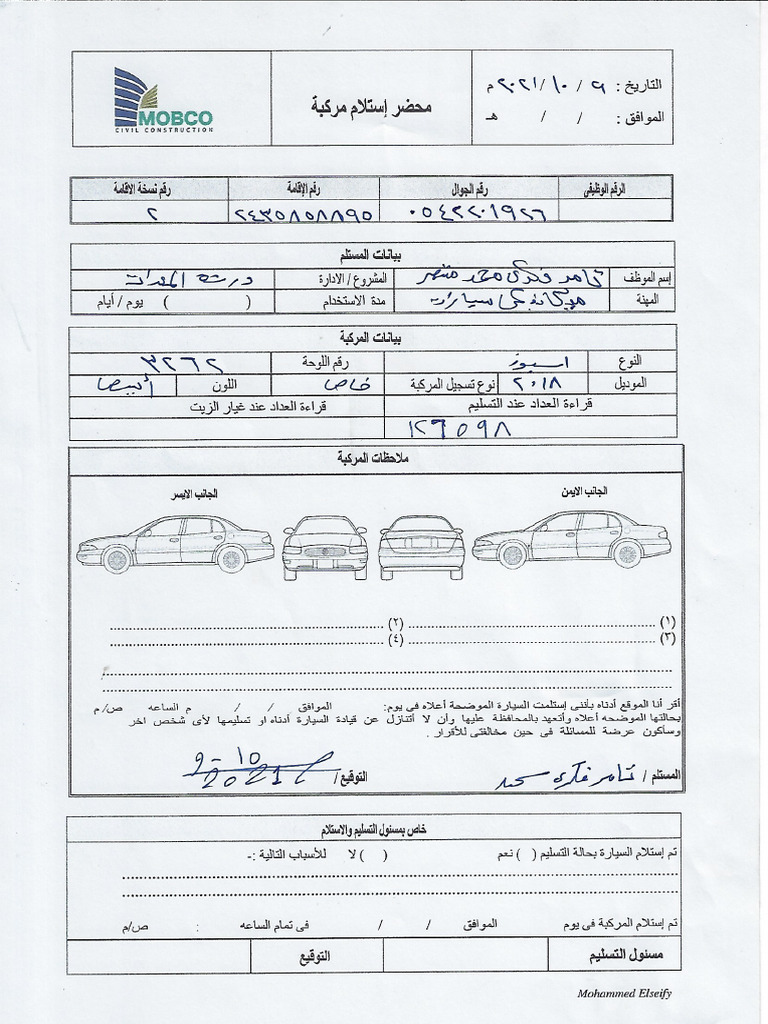 التاريخ : ٩ / ١٠ / ٢٠٢١ م
محضر إستلام مركبة
MOBCO
CIVIL CONSTRUCTION
الموافق : / / هـ
الرقم الوظيفى رقم الجوال رقم الإقامة رقم نسخة الاقامة
٠٥٤٢٢٠١٩٢٦ ٢٤٣٥٨٥٨٨٩٥ ٢
بيانات المستلم
إسم الموظف تامر فكرى محمد منتصر المشروع / الادارة ورشة المعدات
المهنة ميكانيكى سيارات مدة الاستخدام ( ) يوم / أيام
بيانات المركبة
النوع اسبوز رقم اللوحة ٣٢٦٢
الموديل ٢٠١٨ نوع تسجيل المركبة خاص اللون أبيض
قراءة العداد عند التسليم قراءة العداد عند غيار الزيت
١٢٦٥٩٨
ملاحظات المركبة
الجانب الايمن الجانب الايسر
(١) (٢)
(٣) (٤)
أقر أنا الموقع أدناه بأننى إستلمت السيارة الموضحة أعلاه فى يوم: الموافق / / م الساعه ص/ م
بحالتها الموضحه أعلاه وأتعهد بالمحافظة عليها وأن لا أتنازل عن قيادة السيارة أدناه او تسليمها لأى شخص اخر
وسأكون عرضة للمسائلة فى حين مخالفتى للأقرار .
المستلم / تامر فكرى محمد التوقيع / 9-10
2021
خاص بمسئول التسليم والاستلام
تم إستلام السيارة بحالة التسليم ( ) نعم ( ) لا للأسباب التالية :-
تم إستلام المركبة فى يوم الموافق / / فى تمام الساعه : ص/م
مسئول التسليم التوقيع
Mohammed Elseify